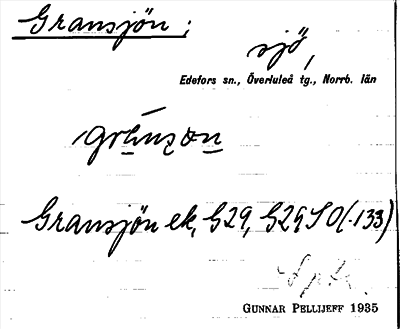 Gransjön;
sjö,
Edefors sn., Överluleå tg., Norrb. län
Gransjön ek, G29, G29 S O (.133)
GUNNAR PELLIJEFF 1935